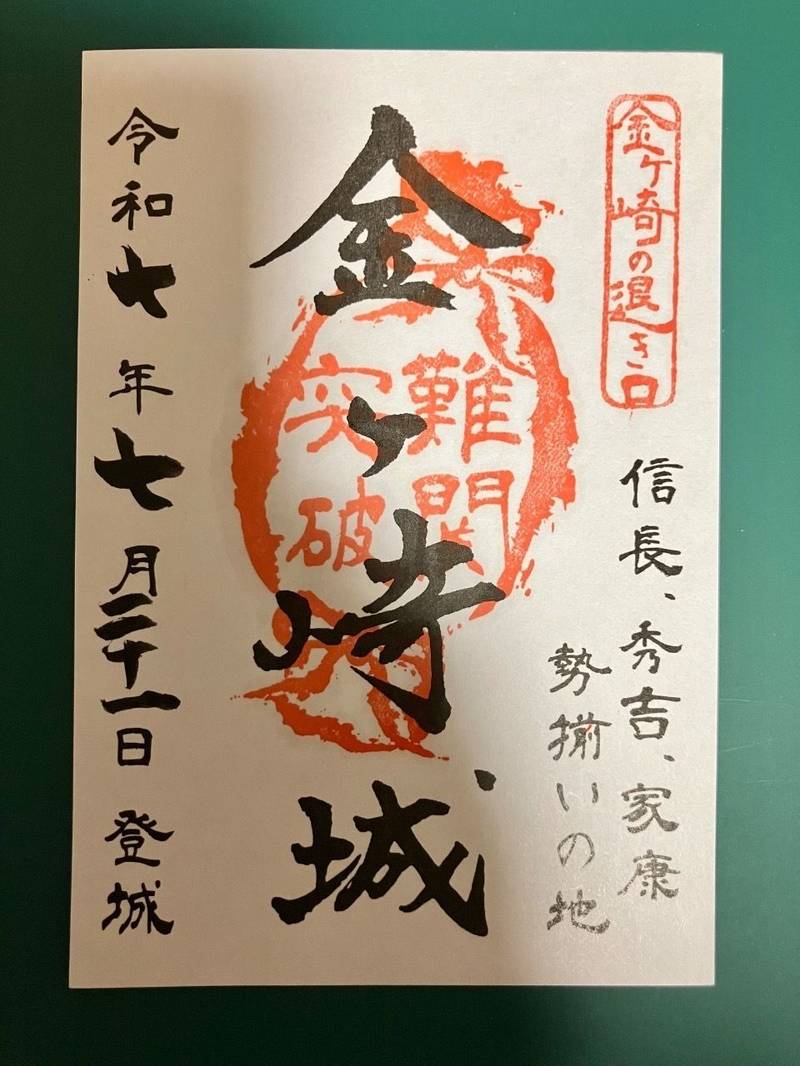 金ヶ崎の退き口
信長、秀吉、家康
勢揃いの地
金ヶ崎城
難関
突破
令和七年七月二十一日 登城